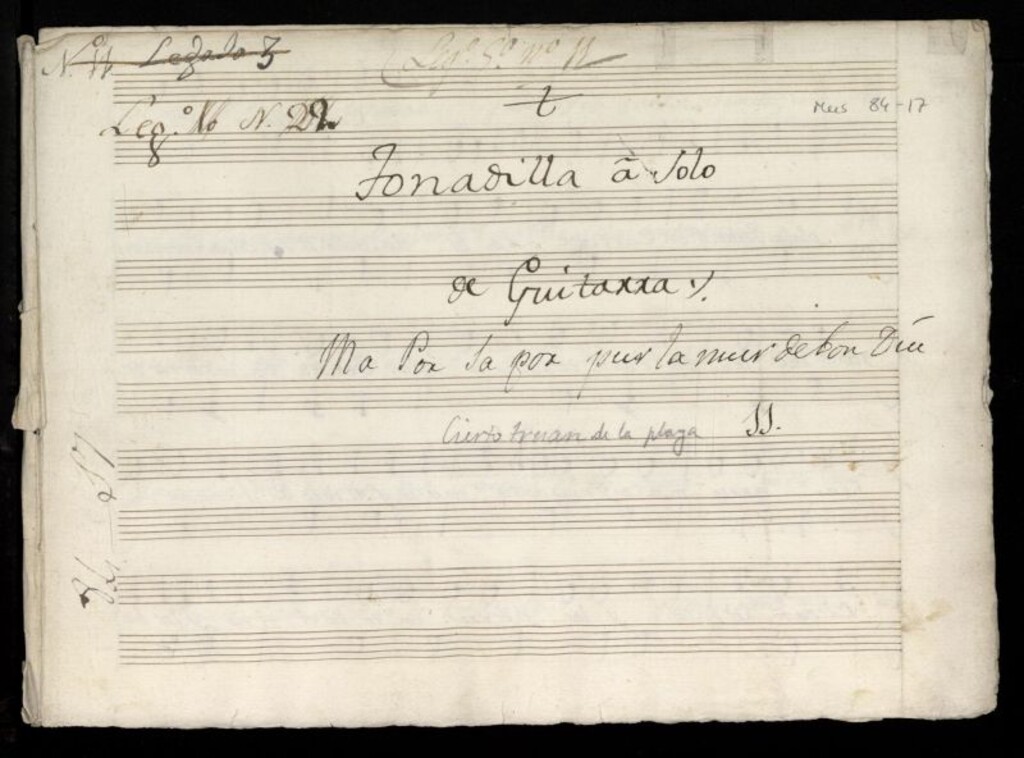 N.º 11 Legado 3
Legº 5º nº 11
t
Leg.º N. 22
Mus 84-17
Tonadilla â Solo
de Guitarra
Ma Por la por pur la mur de bon Diu
Cierto truan de la plaza 11.
84-17